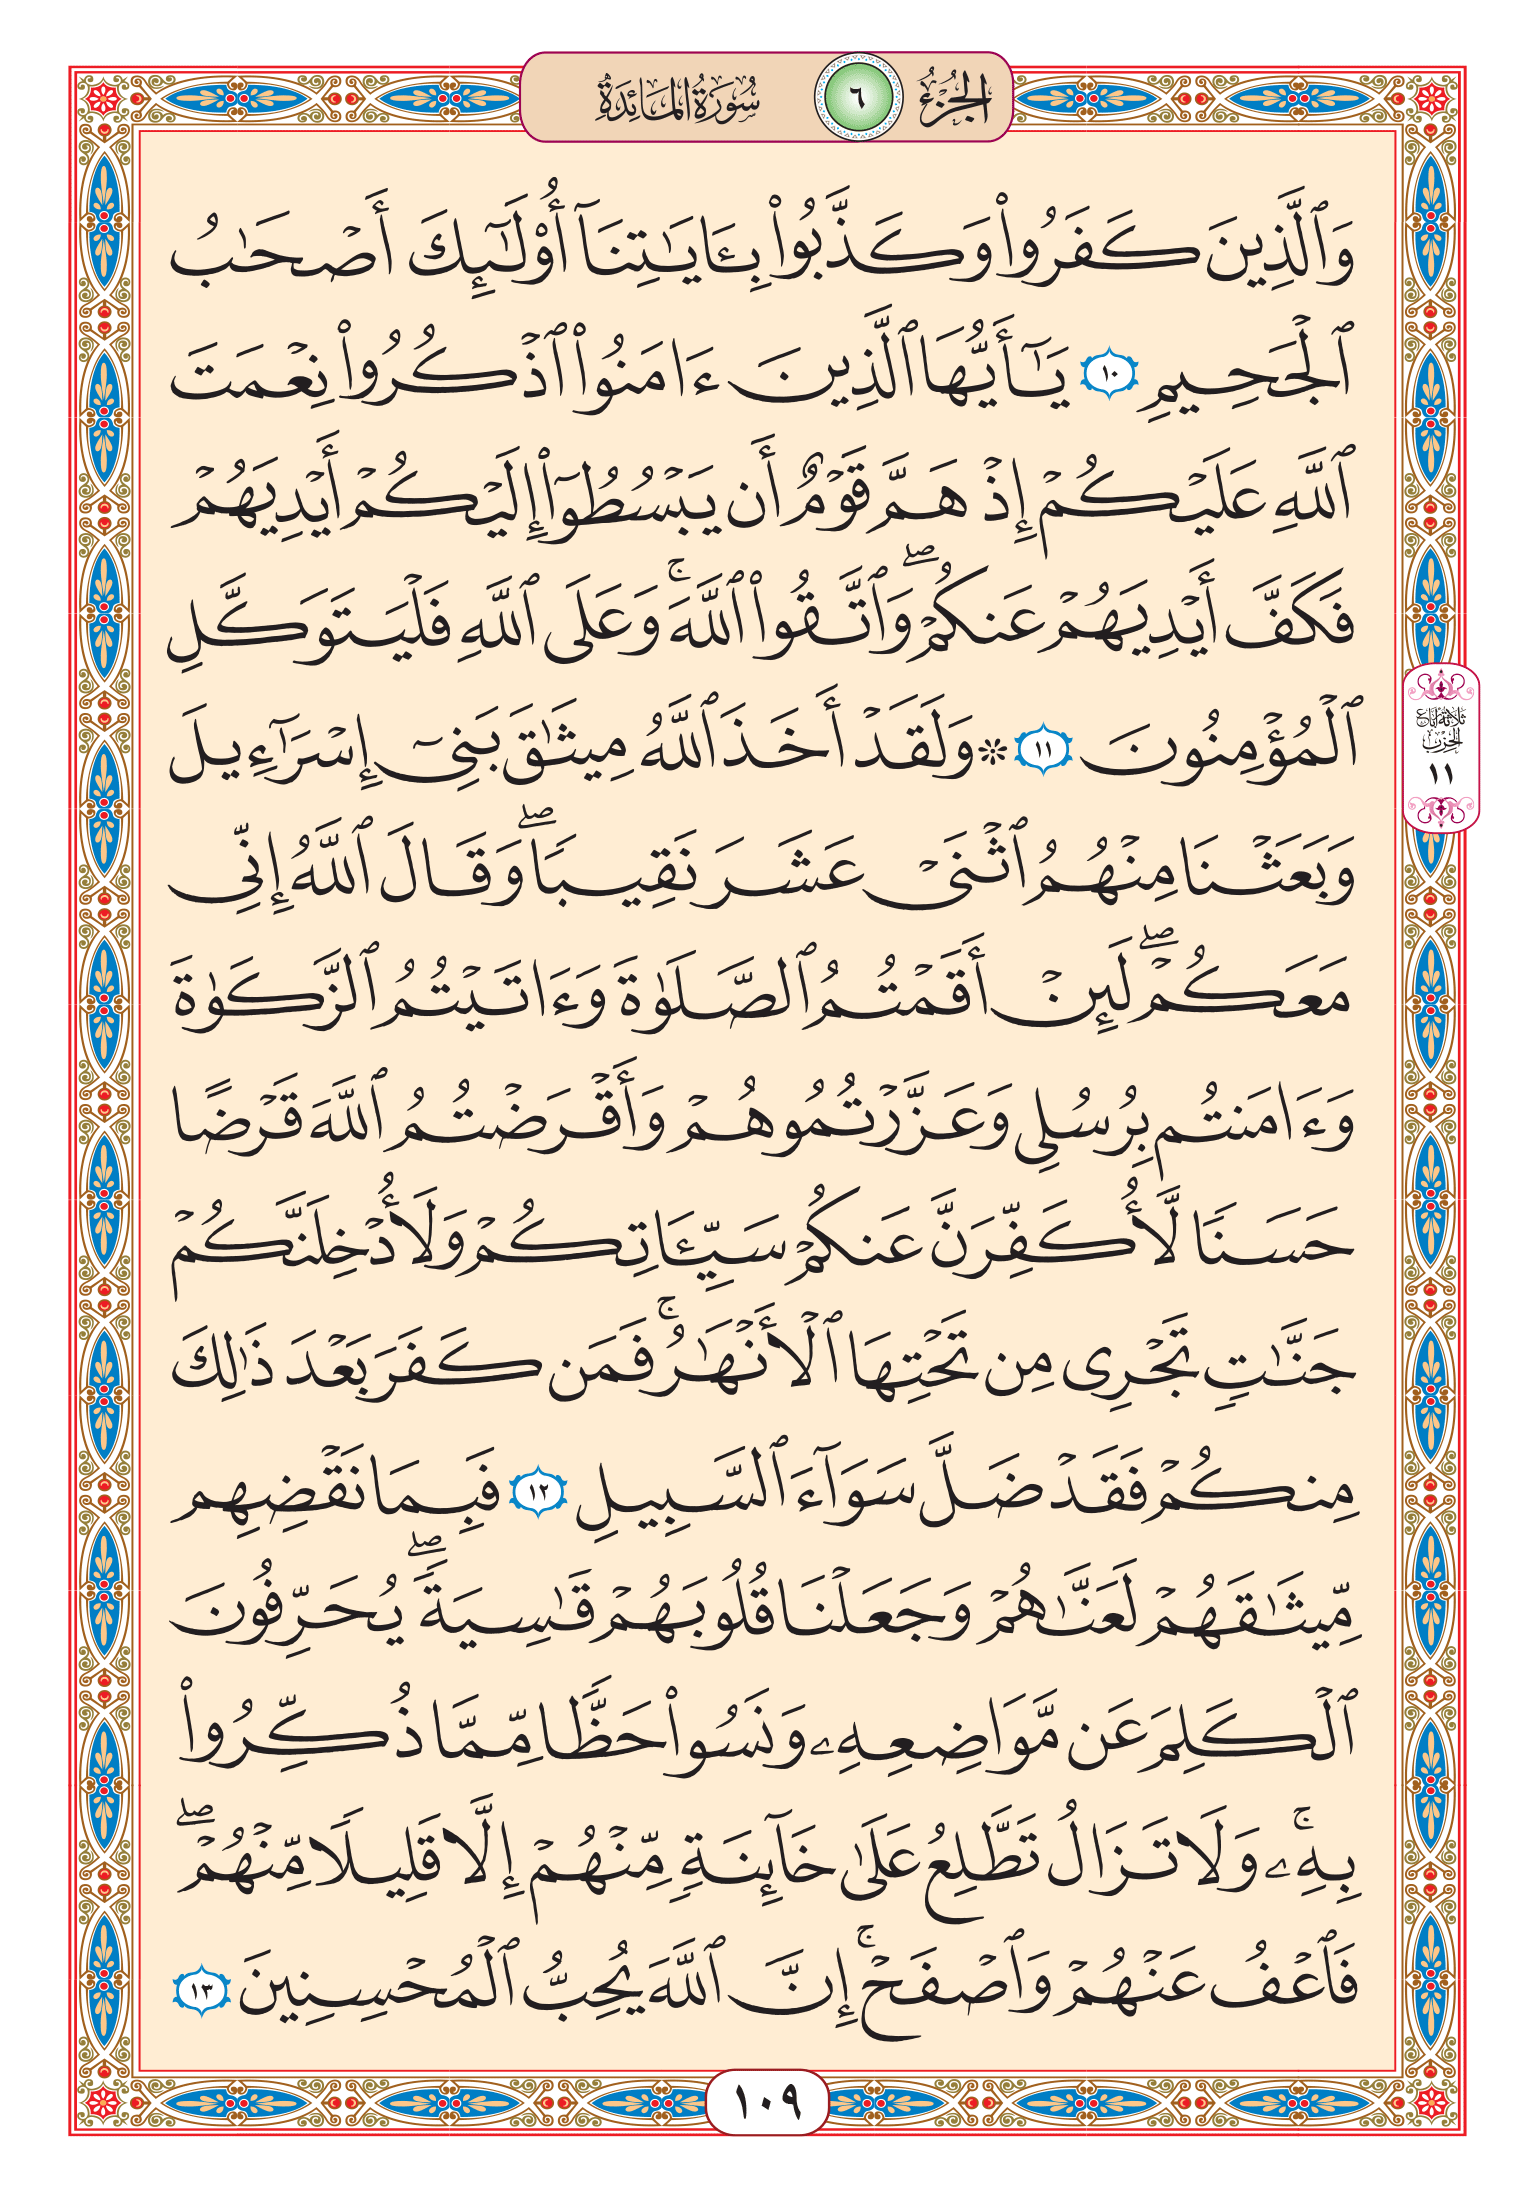 الجُزْءُ ٦ سُورَةُ المَائِدَةِ
وَٱلَّذِينَ كَفَرُواْ وَكَذَّبُواْ بِـَٔايَٰتِنَآ أُوْلَٰٓئِكَ أَصۡحَٰبُ
ٱلۡجَحِيمِ ١٠ يَٰٓأَيُّهَا ٱلَّذِينَ ءَامَنُواْ ٱذۡكُرُواْ نِعۡمَتَ
ٱللَّهِ عَلَيۡكُمۡ إِذۡ هَمَّ قَوۡمٌ أَن يَبۡسُطُوٓاْ إِلَيۡكُمۡ أَيۡدِيَهُمۡ
فَكَفَّ أَيۡدِيَهُمۡ عَنكُمۡۖ وَٱتَّقُواْ ٱللَّهَۚ وَعَلَى ٱللَّهِ فَلۡيَتَوَكَّلِ
ٱلۡمُؤۡمِنُونَ ١١ ۞ وَلَقَدۡ أَخَذَ ٱللَّهُ مِيثَٰقَ بَنِيٓ إِسۡرَٰٓءِيلَ
وَبَعَثۡنَا مِنۡهُمُ ٱثۡنَيۡ عَشَرَ نَقِيبٗاۖ وَقَالَ ٱللَّهُ إِنِّي
مَعَكُمۡۖ لَئِنۡ أَقَمۡتُمُ ٱلصَّلَوٰةَ وَءَاتَيۡتُمُ ٱلزَّكَوٰةَ
وَءَامَنتُم بِرُسُلِي وَعَزَّرۡتُمُوهُمۡ وَأَقۡرَضۡتُمُ ٱللَّهَ قَرۡضًا
حَسَنٗا لَّأُكَفِّرَنَّ عَنكُمۡ سَيِّـَٔاتِكُمۡ وَلَأُدۡخِلَنَّكُمۡ
جَنَّٰتٖ تَجۡرِي مِن تَحۡتِهَا ٱلۡأَنۡهَٰرُۚ فَمَن كَفَرَ بَعۡدَ ذَٰلِكَ
مِنكُمۡ فَقَدۡ ضَلَّ سَوَآءَ ٱلسَّبِيلِ ١٢ فَبِمَا نَقۡضِهِم
مِّيثَٰقَهُمۡ لَعَنَّٰهُمۡ وَجَعَلۡنَا قُلُوبَهُمۡ قَٰسِيَةٗۖ يُحَرِّفُونَ
ٱلۡكَلِمَ عَن مَّوَاضِعِهِۦ وَنَسُواْ حَظّٗا مِّمَّا ذُكِّرُواْ
بِهِۦۚ وَلَا تَزَالُ تَطَّلِعُ عَلَىٰ خَآئِنَةٖ مِّنۡهُمۡ إِلَّا قَلِيلٗا مِّنۡهُمۡۖ
فَٱعۡفُ عَنۡهُمۡ وَٱصۡفَحۡۚ إِنَّ ٱللَّهَ يُحِبُّ ٱلۡمُحۡسِنِينَ ١٣
ثلاثة أرباع
الحزب
١١
١٠٩